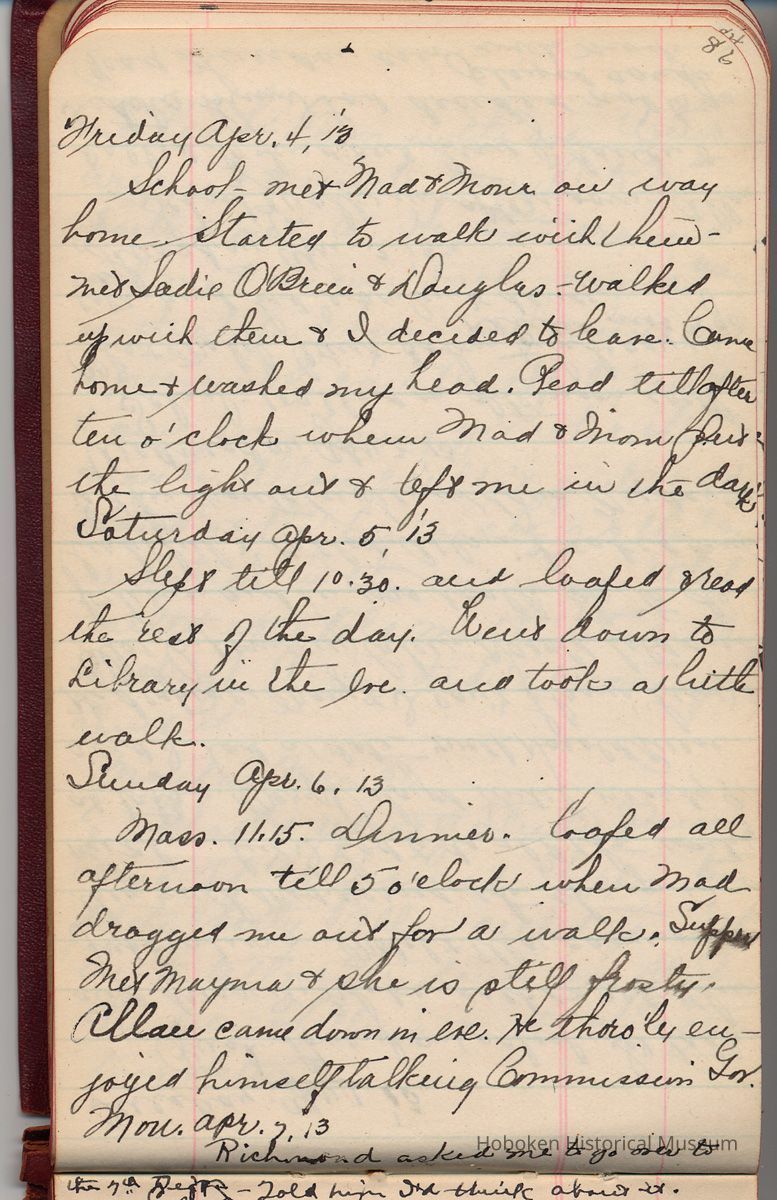 82
Friday Apr. 4, '13
School - met Mad & Mom on way
home. Started to walk with them -
met Sadie O'Brien & Douglas - walked
up with them & I decided to leave. Came
home & washed my head. Read till after
ten o'clock when Mad & Mom put
the light out & left me in the dark.
Saturday Apr. 5, '13
Slept till 10.30. and loafed & read
the rest of the day. Went down to
Library in the Eve. and took a little
walk.
Sunday Apr. 6, 13
Mass. 11.15. Dinner. loafed all
afternoon till 5 o'clock when Mad
dragged me out for a walk. Supper
Met Mayma & she is still frosty.
Allan came down in eve. He thoro'ly en-
joyed himself talking Commission Gov.
Mon. Apr. 7, 13
Richmond asked me to go over to
the 7th Regt. - Told him I'd think about it.
Hoboken Historical Museum